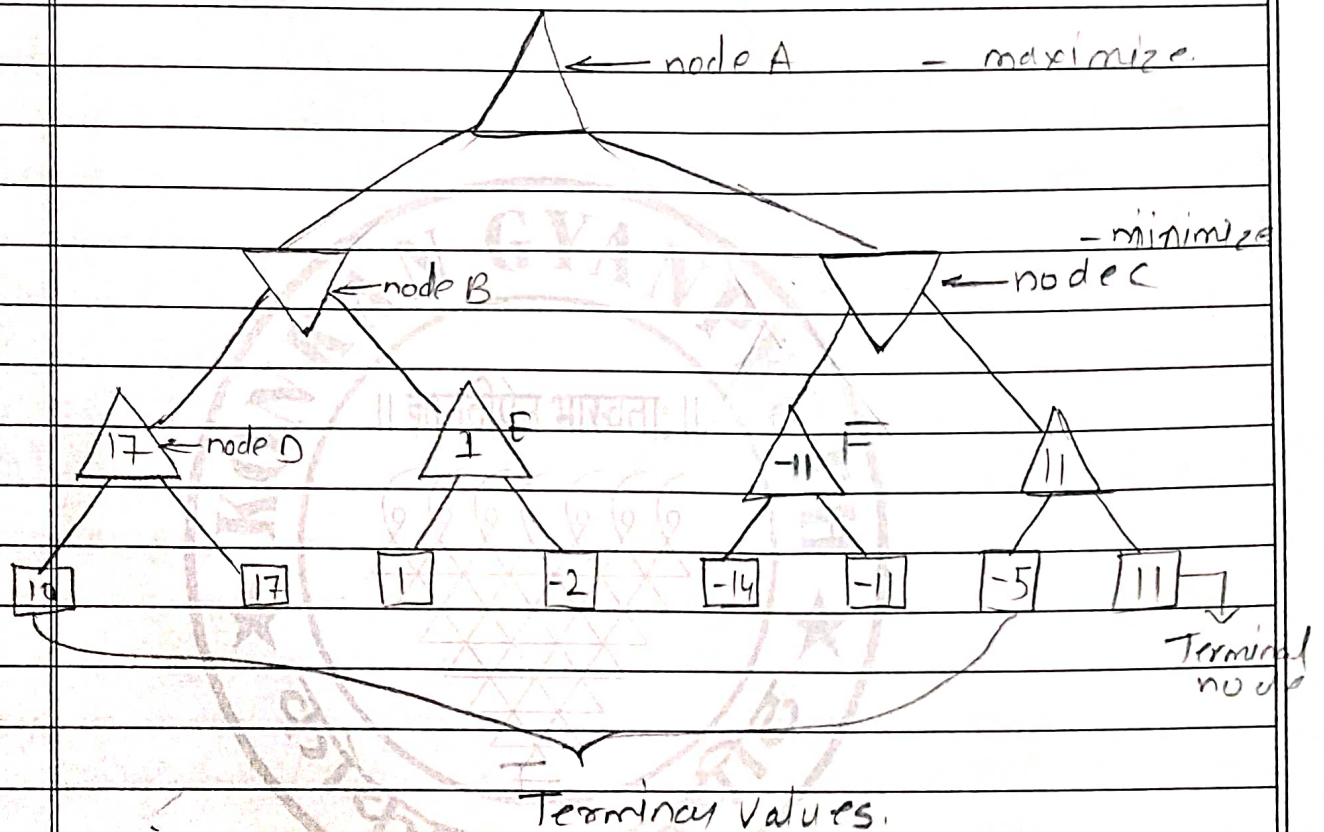 node A - maximize.
- minimize
node B
node C
17 node D
1 E
-11 F
11
10 17 1 -2 -14 -11 -5 11
Terminal
node
Terminay values.